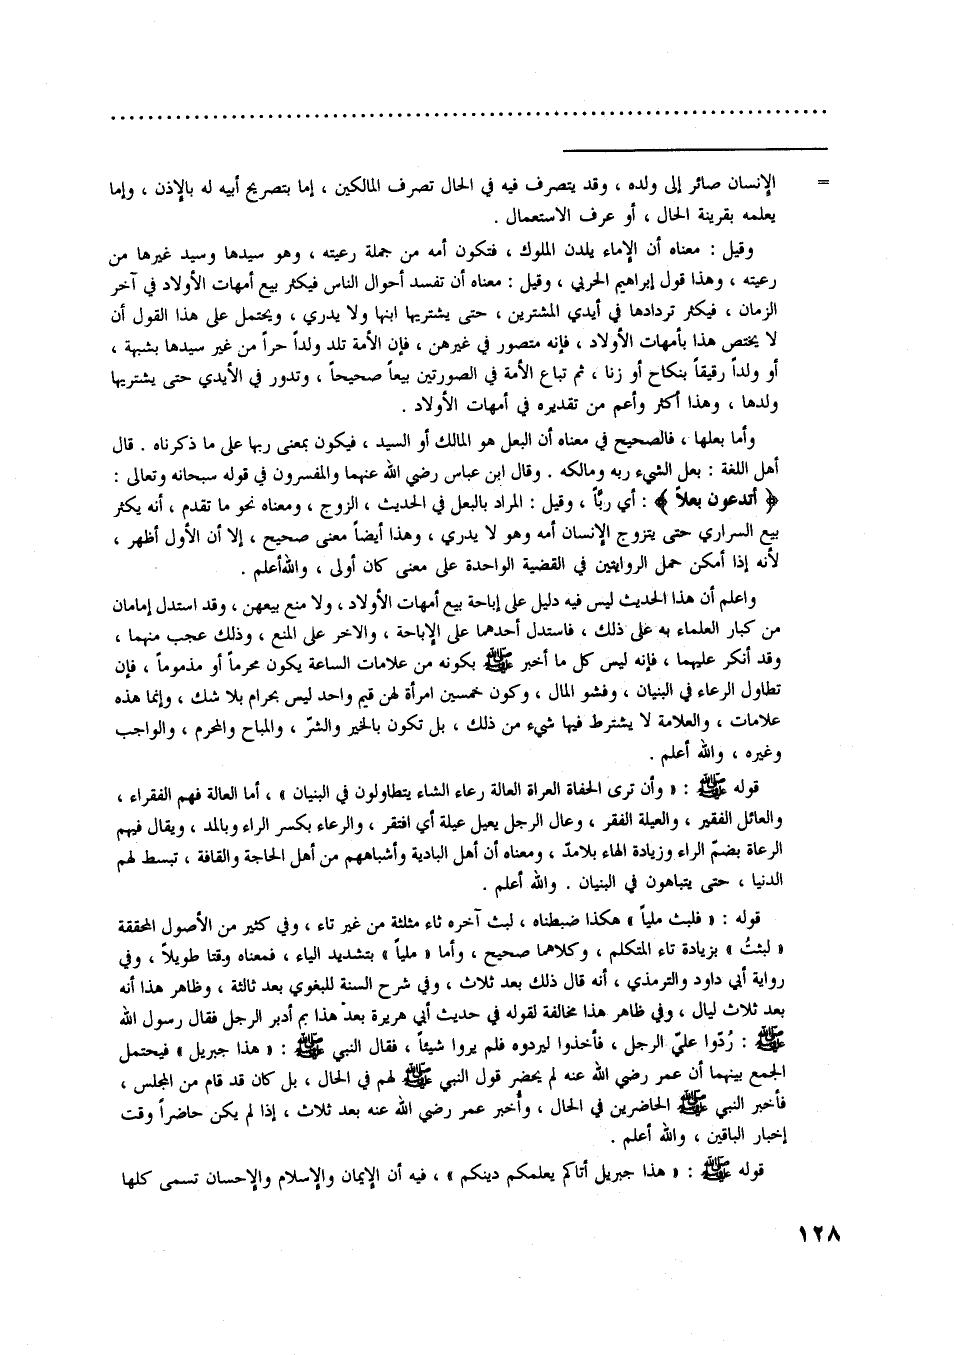 = الإنسان صائر إلى ولده ، وقد يتصرف فيه في الحال تصرف المالكين ، إما بتصريح أبيه له بالإذن ، وإما
يعلمه بقرينة الحال ، أو عرف الاستعمال .
وقيل : معناه أن الإماء يلدن الملوك ، فتكون أمه من جملة رعيته ، وهو سيدها وسيد غيرها من
رعيته ، وهذا قول إبراهيم الحربي ، وقيل : معناه أن تفسد أحوال الناس فيكثر بيع أمهات الأولاد في آخر
الزمان ، فيكثر تردادها في أيدي المشترين ، حتى يشتريها ابنها ولا يدري ، ويحتمل على هذا القول أن
لا يختص هذا بأمهات الأولاد ، فإنه متصور في غيرهن ، فإن الأمة تلد ولداً حراً من غير سيدها بشبهة ،
أو ولداً رقيقاً بنكاح أو زنا ، ثم تباع الأمة في الصورتين بيعاً صحيحاً ، وتدور في الأيدي حتى يشتريها
ولدها ، وهذا أكثر وأعم من تقديره في أمهات الأولاد .
وأما بعلها ، فالصحيح في معناه أن البعل هو المالك أو السيد ، فيكون بمعنى ربها على ما ذكرناه . قال
أهل اللغة : بعل الشيء ربه ومالكه . وقال ابن عباس رضي الله عنهما والمفسرون في قوله سبحانه وتعالى :
﴿ أتدعون بعلاً ﴾ : أي ربّاً ، وقيل : المراد بالبعل في الحديث ، الزوج ، ومعناه نحو ما تقدم ، أنه يكثر
بيع السراري حتى يتزوج الإنسان أمه وهو لا يدري ، وهذا أيضاً معنى صحيح ، إلا أن الأول أظهر ،
لأنه إذا أمكن حمل الروايتين في القضية الواحدة على معنى كان أولى ، واللهأعلم .
واعلم أن هذا الحديث ليس فيه دليل على إباحة بيع أمهات الأولاد ، ولا منع بيعهن ، وقد استدل إمامان
من كبار العلماء به على ذلك ، فاستدل أحدهما على الإباحة ، والاخر على المنع ، وذلك عجب منهما ،
وقد أنكر عليهما ، فإنه ليس كل ما أخبر ﷺ بكونه من علامات الساعة يكون محرماً أو مذموماً ، فإن
تطاول الرعاء في البنيان ، وفشو المال ، وكون خمسين امرأة لهن قيم واحد ليس بحرام بلا شك ، وإنما هذه
علامات ، والعلامة لا يشترط فيها شيء من ذلك ، بل تكون بالخير والشرّ ، والمباح والمحرم ، والواجب
وغيره ، والله أعلم .
قوله ﷺ : « وأن ترى الحفاة العراة العالة رعاء الشاء يتطاولون في البنيان » ، أما العالة فهم الفقراء ،
والعائل الفقير ، والعيلة الفقر ، وعال الرجل يعيل عيلة أي افتقر ، والرعاء بكسر الراء وبالمد ، ويقال فيهم
الرعاة بضمّ الراء وزيادة الهاء بلامدّ ، ومعناه أن أهل البادية وأشباههم من أهل الحاجة والفاقة ، تبسط لهم
الدنيا ، حتى يتباهون في البنيان . والله أعلم .
قوله : « فلبث ملياً » هكذا ضبطناه ، لبث آخره ثاء مثلثة من غير تاء ، وفي كثير من الأصول المحققة
« لبثتُ » بزيادة تاء المتكلم ، وكلاهما صحيح ، وأما « ملياً » بتشديد الياء ، فمعناه وقتا طويلاً ، وفي
رواية أبي داود والترمذي ، أنه قال ذلك بعد ثلاث ، وفي شرح السنة للبغوي بعد ثالثة ، وظاهر هذا أنه
بعد ثلاث ليال ، وفي ظاهر هذا مخالفة لقوله في حديث أبي هريرة بعد هذا بم أدبر الرجل فقال رسول الله
ﷺ : رُدّوا عليّ الرجل ، فأخذوا ليردوه فلم يروا شيئاً ، فقال النبي ﷺ : « هذا جبريل » فيحتمل
الجمع بينهما أن عمر رضي الله عنه لم يحضر قول النبي ﷺ لهم في الحال ، بل كان قد قام من المجلس ،
فأخبر النبي ﷺ الحاضرين في الحال ، وأخبر عمر رضي الله عنه بعد ثلاث ، إذا لم يكن حاضراً وقت
إخبار الباقين ، والله أعلم .
قوله ﷺ : « هذا جبريل أتاكم يعلمكم دينكم » ، فيه أن الإيمان والإسلام والإحسان تسمى كلها
١٢٨